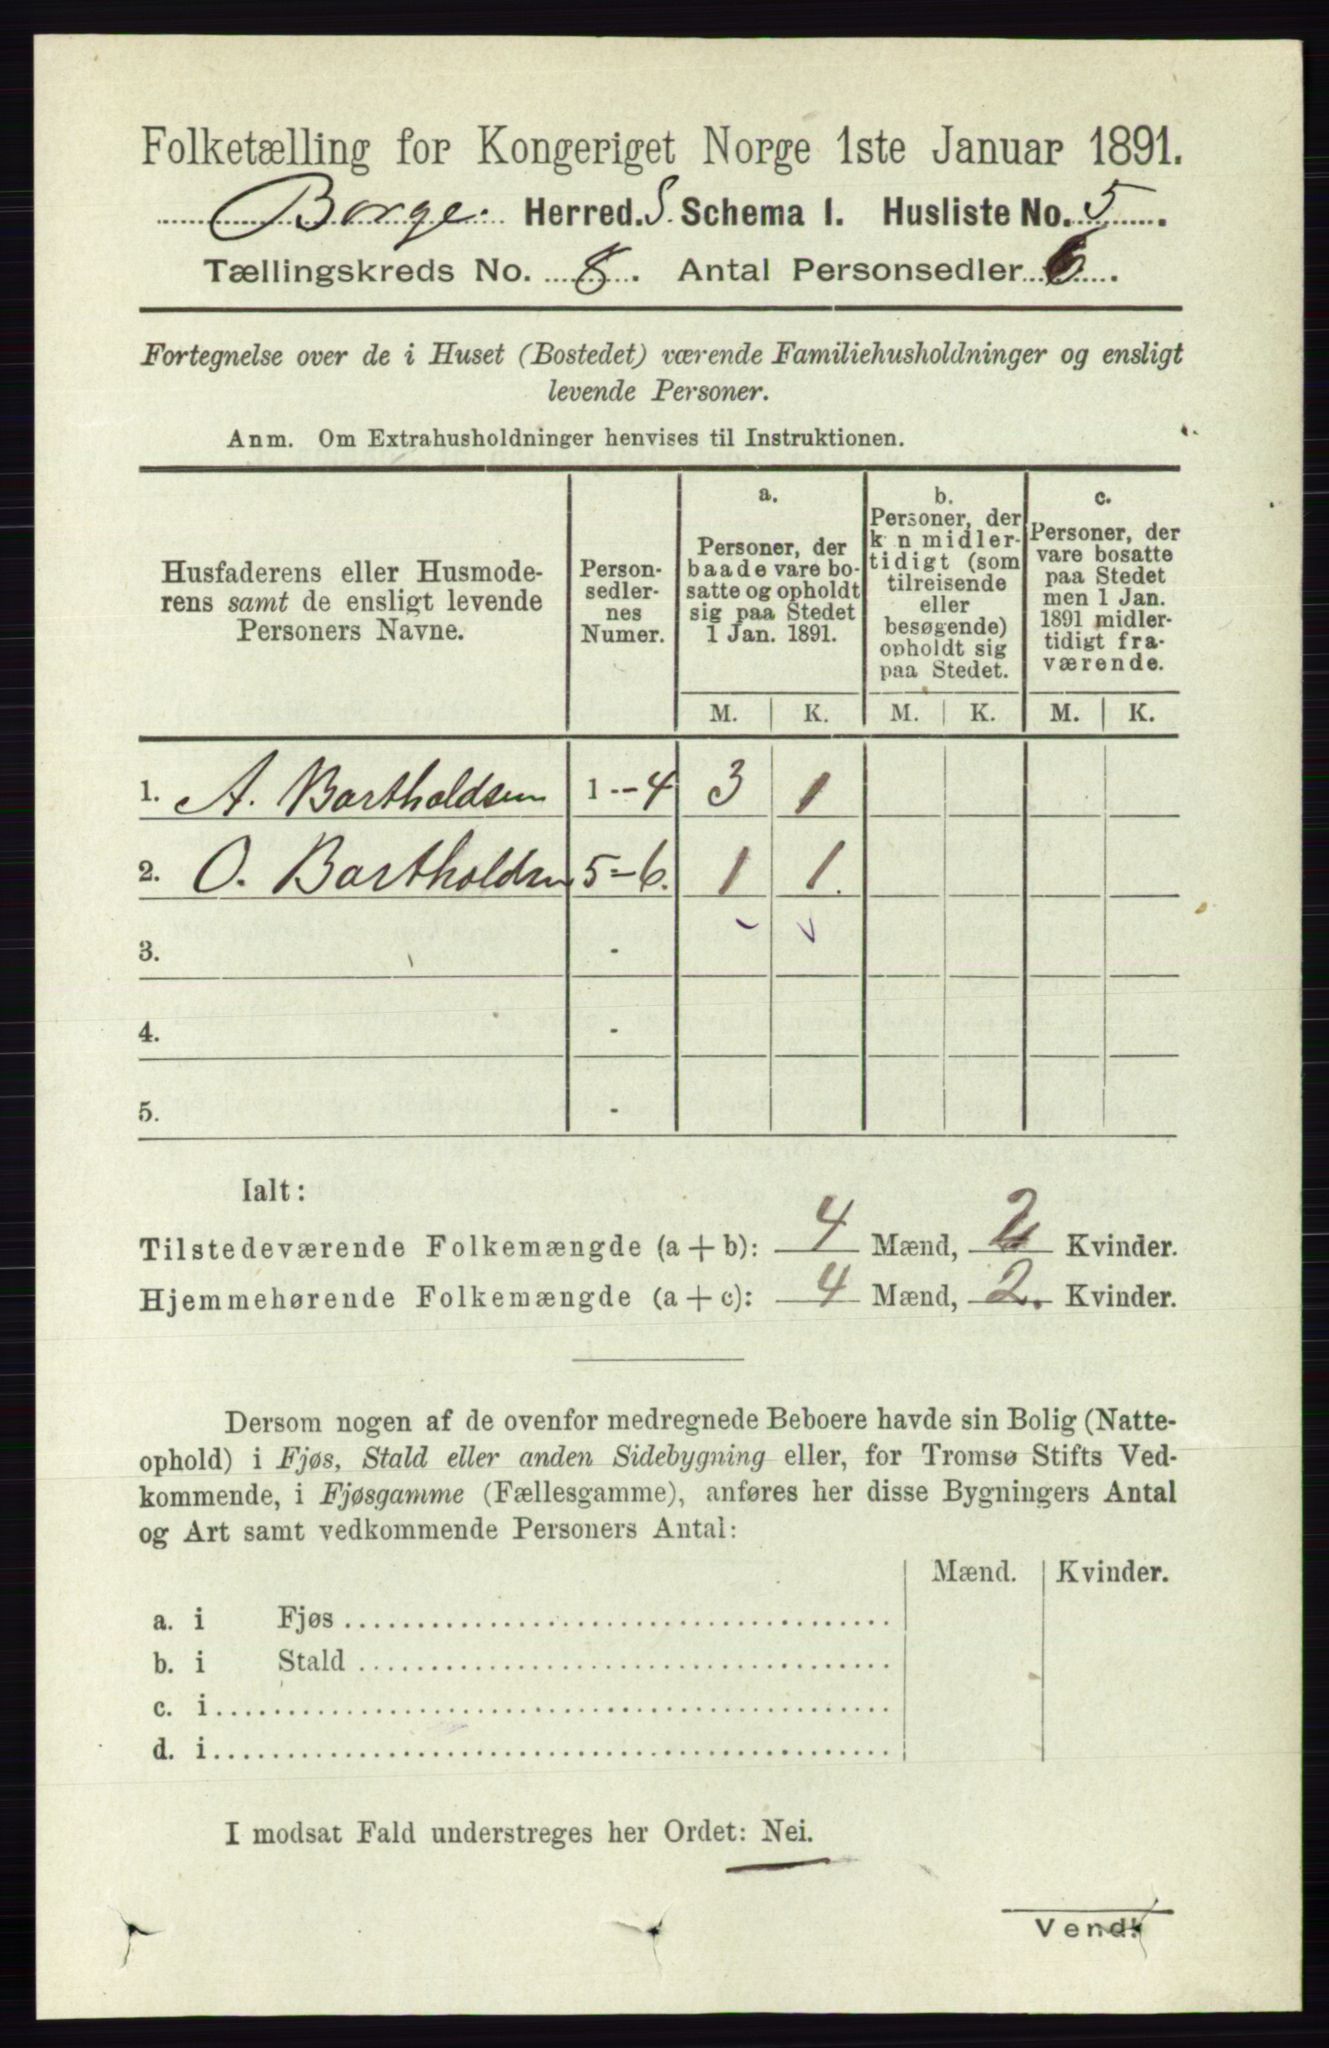 Folketælling for Kongeriget Norge 1ste Januar 1891.
Borge. Herred. S. Schema 1. Husliste No. 5.
Tællingskreds No. 8. Antal Personsedler 6.
Fortegnelse over de i Huset (Bostedet) værende Familiehusholdninger og ensligt
levende Personer.
Anm. Om Extrahusholdninger henvises til Instruktionen.
Husfaderens eller Husmode-
rens samt de ensligt levende
Personers Navne.
Person-
sedler-
nes
Numer.
a.
Personer, der
baade vare bo-
satte og opholdt
sig paa Stedet
1 Jan. 1891.
b.
Personer, der
k n midler-
tidigt (som
tilreisende
eller
besøgende)
opholdt sig
paa Stedet.
c.
Personer, der
vare bosatte
paa Stedet
men 1 Jan.
1891 midler-
tidigt fra-
værende.
M. K. M. K. M. K.
1. A. Bartholdsen 1 - 4 3 1
2. O. Bartholdsen 5 - 6. 1 1.
3. -
4. -
5. -
Ialt:
Tilstedeværende Folkemængde (a + b): 4 Mænd, 2 Kvinder.
Hjemmehørende Folkemængde (a + c): 4 Mænd, 2. Kvinder.
Dersom nogen af de ovenfor medregnede Beboere havde sin Bolig (Natte-
ophold) i Fjøs, Stald eller anden Sidebygning eller, for Tromsø Stifts Ved-
kommende, i Fjøsgamme (Fællesgamme), anføres her disse Bygningers Antal
og Art samt vedkommende Personers Antal:
Mænd. Kvinder.
a. i Fjøs
b. i Stald
c. i
d. i
I modsat Fald understreges her Ordet: Nei.
Vend!